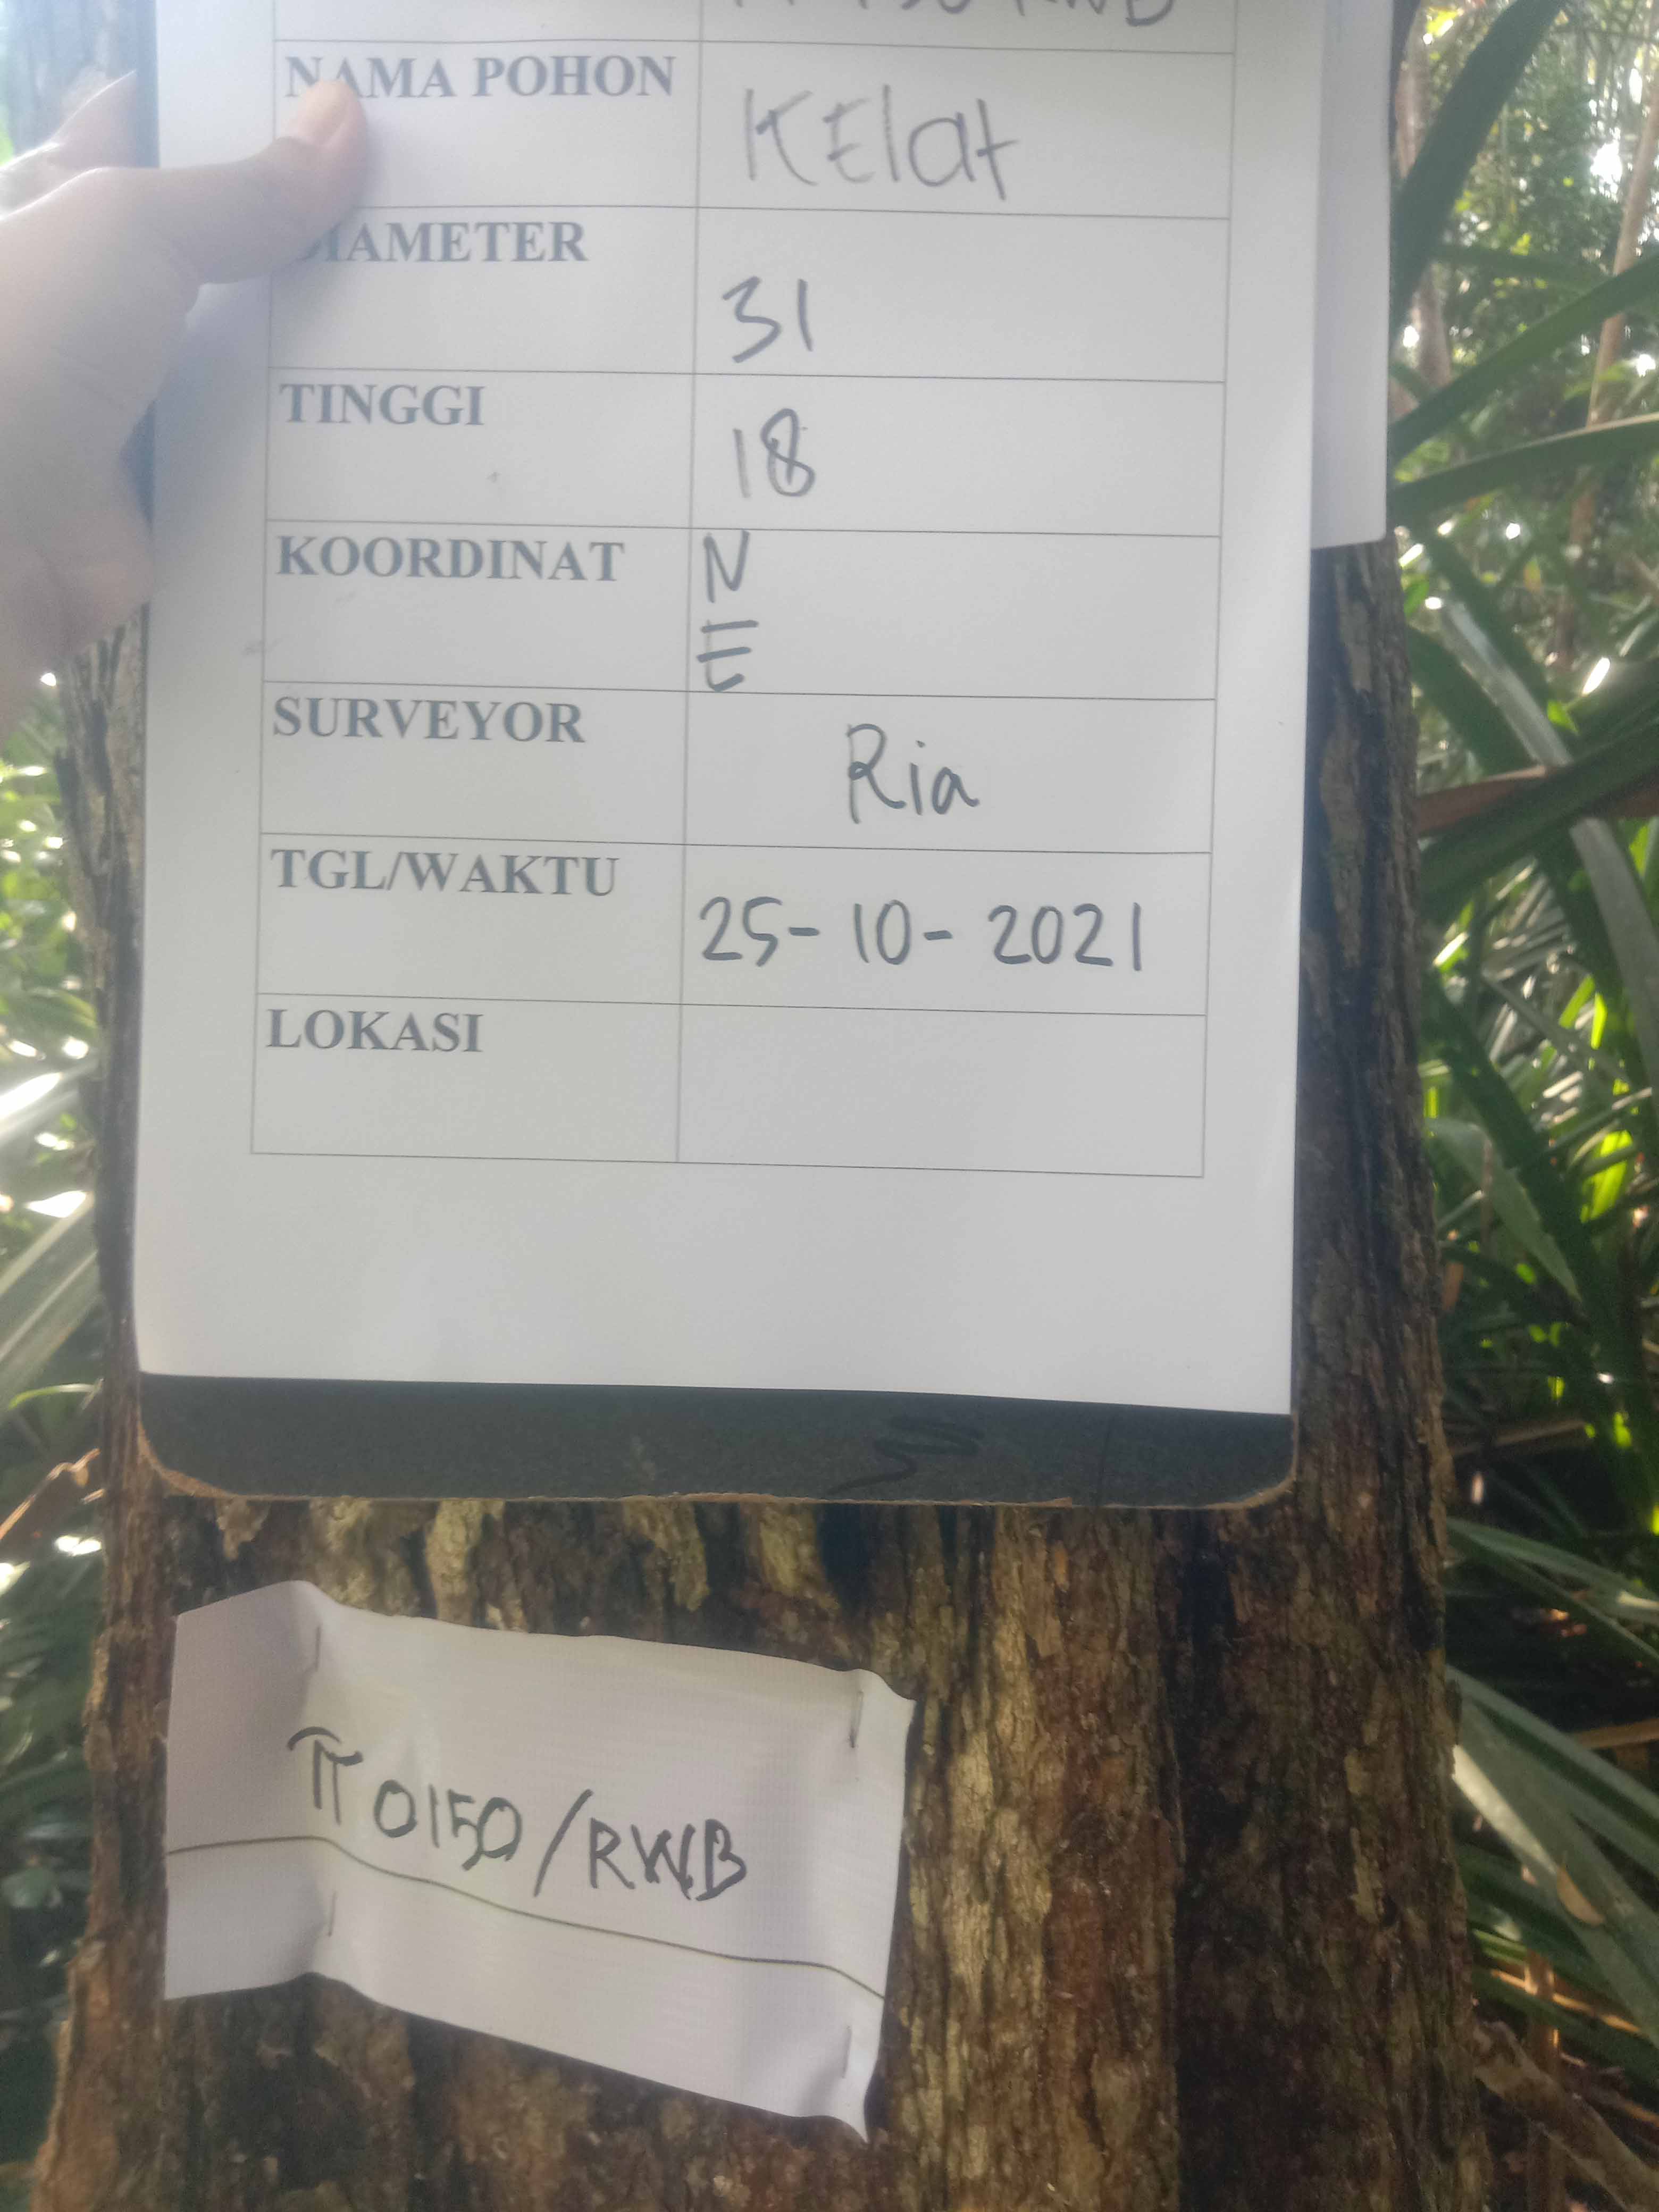 NAMA POHON KElat
DIAMETER 31
TINGGI 18
KOORDINAT N
E
SURVEYOR Ria
TGL/WAKTU 25-10-2021
LOKASI
TT 0150/RWB